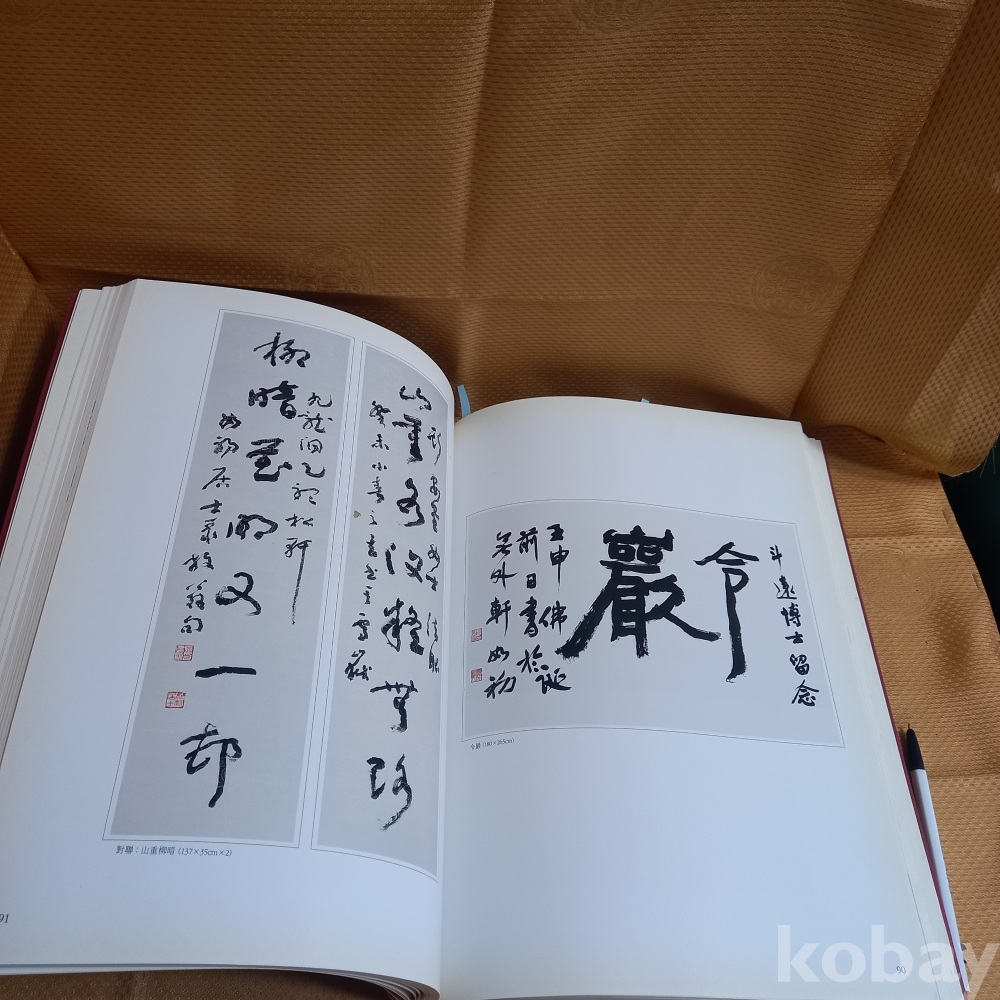 斗遠博士留念
令嚴
壬申佛誕
前日書於
外軒 如初
令嚴 (180×265cm)
90
山重水複疑無路
癸未小春之吉
柳暗花明又一邨
九龍洞 松軒
如初居士 放翁句
對聯：山重柳暗 (137×35cm×2)
91
kobay